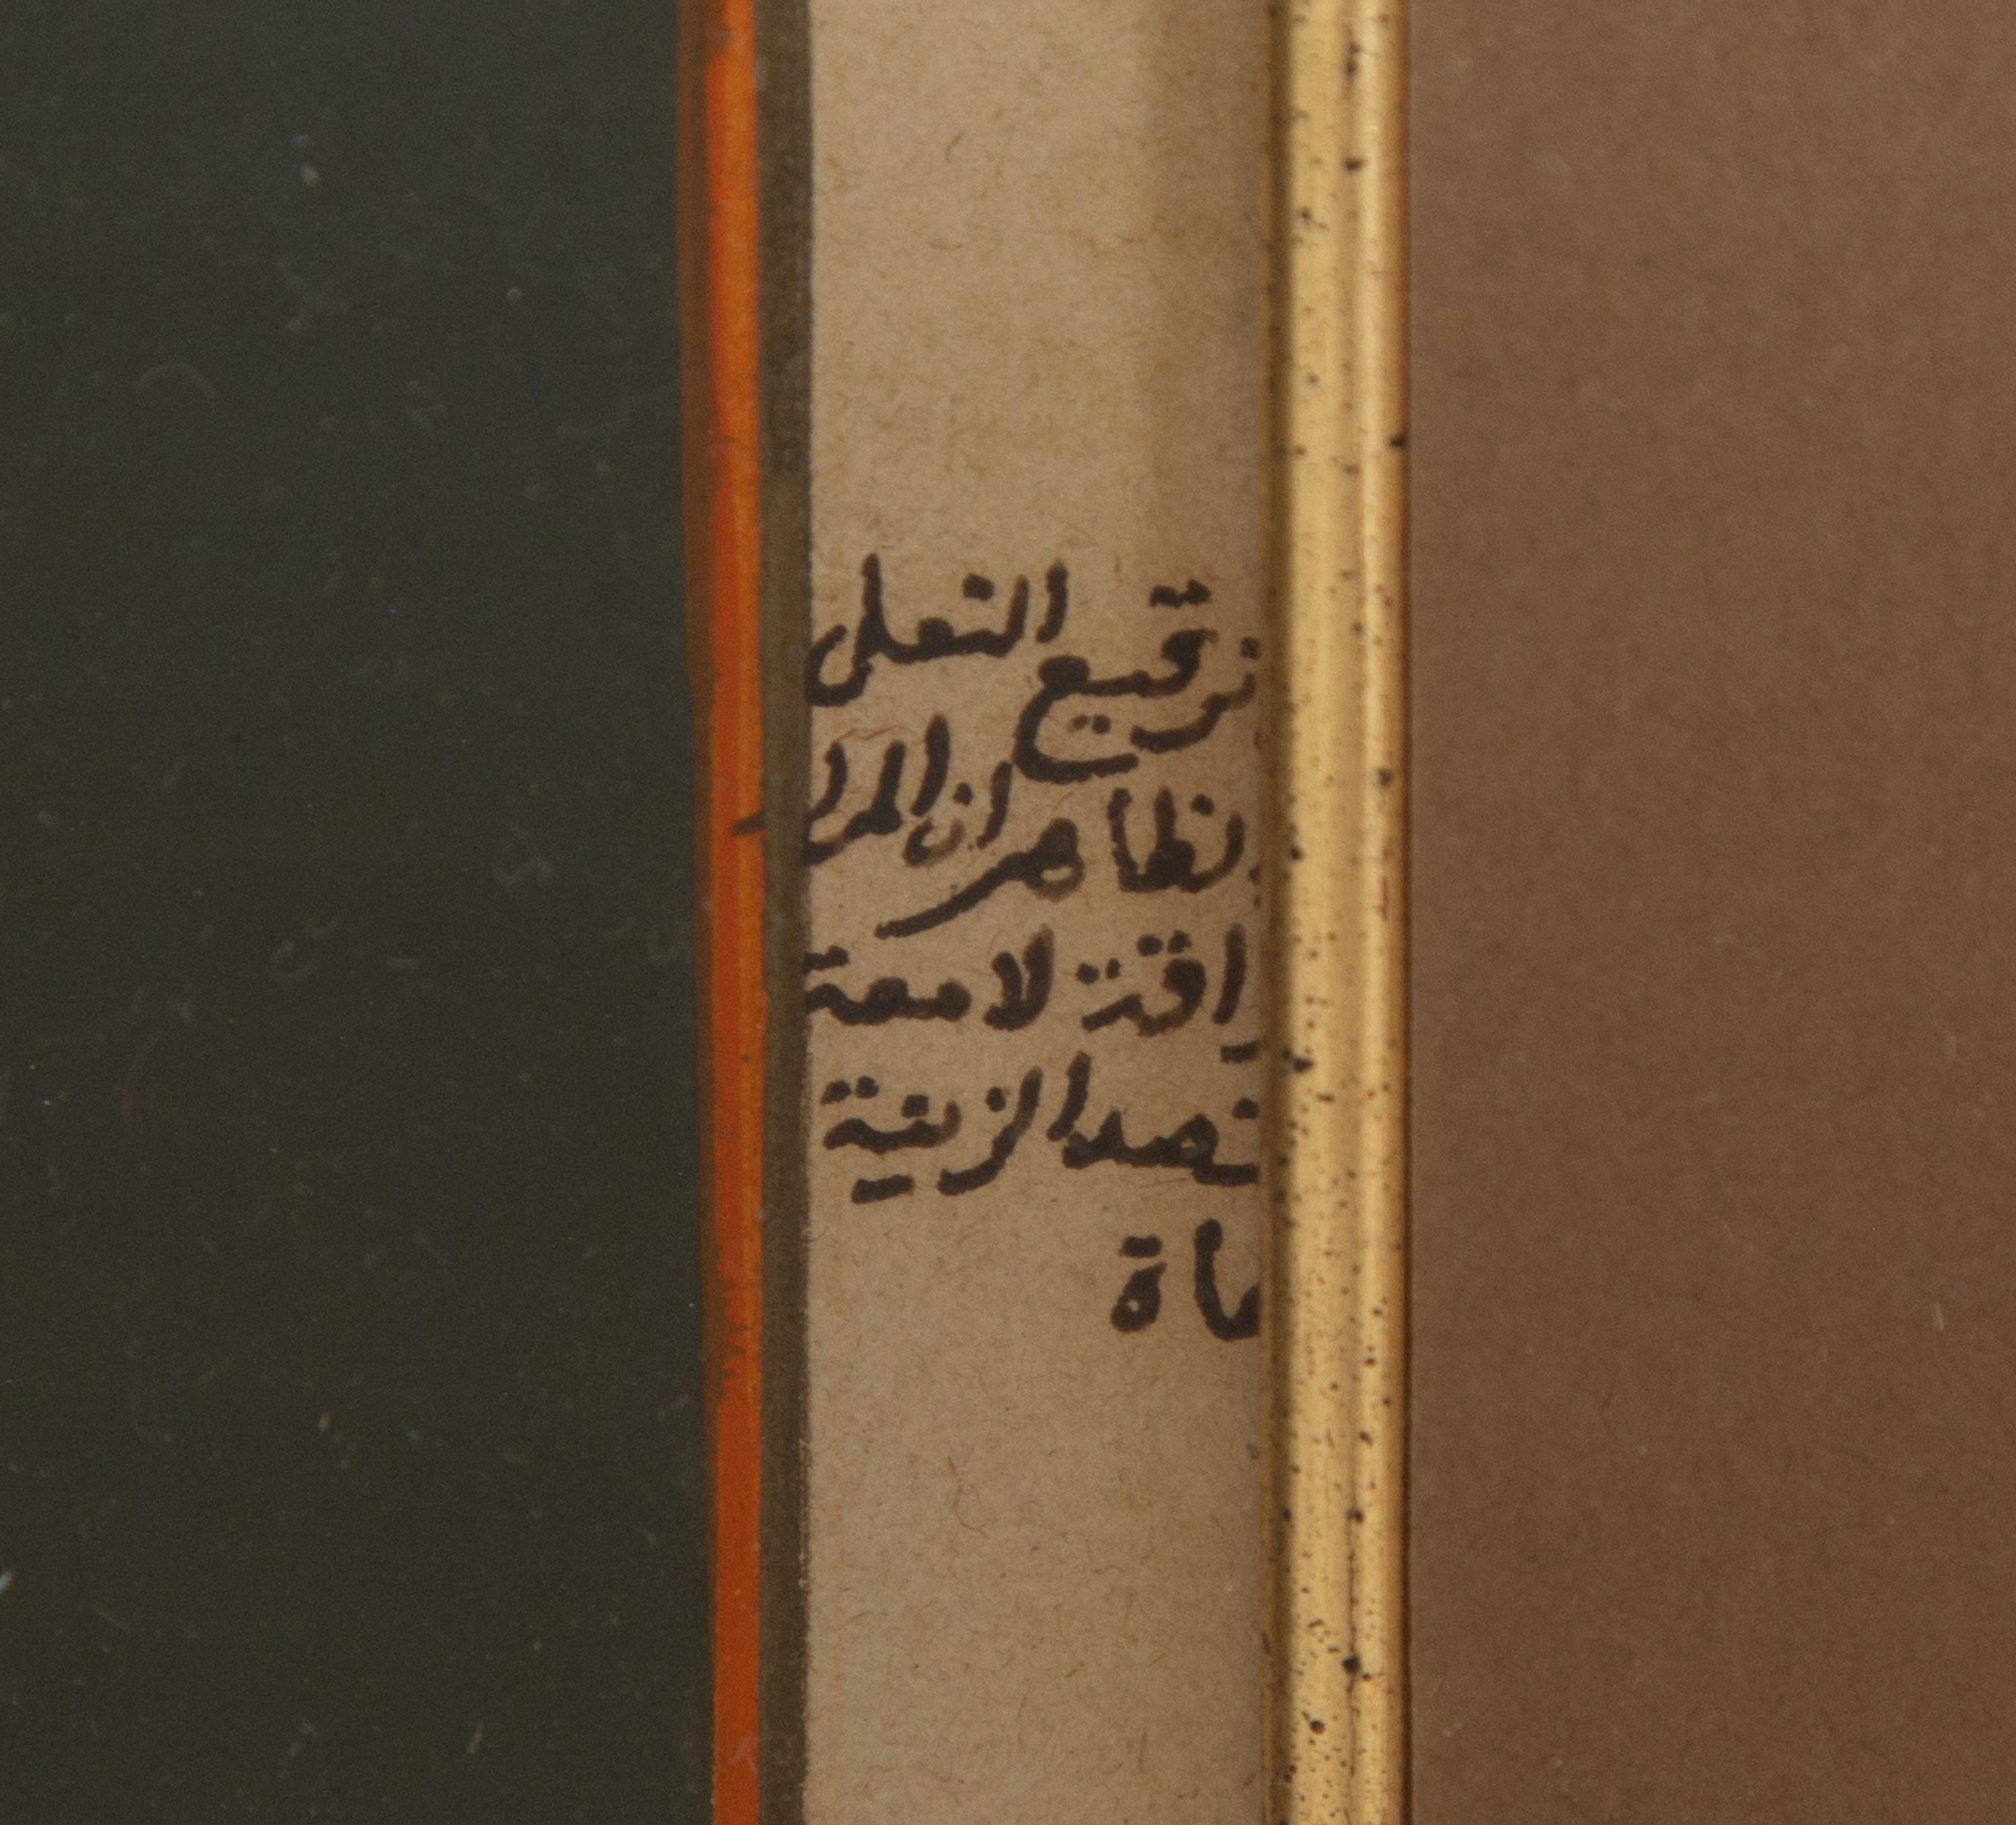 ترقيع النعلى
نظاهر ان المرا
راقة لامعة
تصد الزينة
ماة